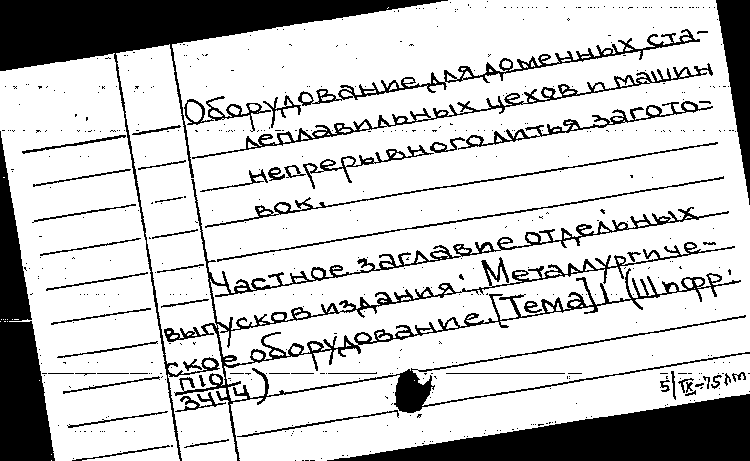 Оборудование для доменных, ста-
леплавильных цехов и машин
непрерывного литья загото=
вок.
Частное заглавие отдельных
выпусков издания: Металлургиче-
ское оборудование. [Тема] 1. (Шифр:
П10
3444).
5/IX-75